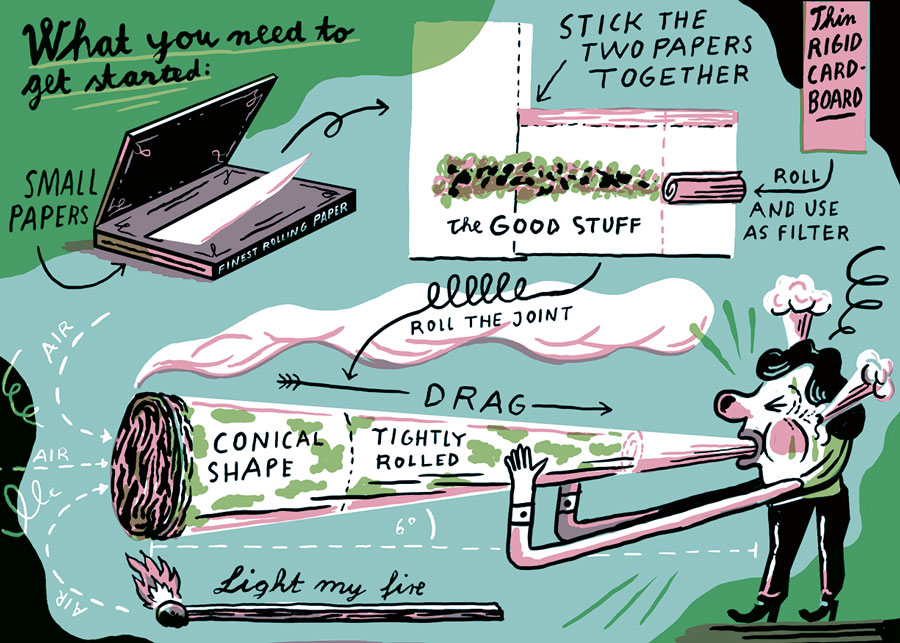 What you need to
get started:
SMALL
PAPERS
FINEST ROLLING PAPER
STICK THE
TWO PAPERS
TOGETHER
Thin
RIGID
CARD-
BOARD
ROLL
AND USE
AS FILTER
the GOOD STUFF
ROLL THE JOINT
AIR
AIR
AIR
DRAG
CONICAL
SHAPE
TIGHTLY
ROLLED
6°
Light my fire